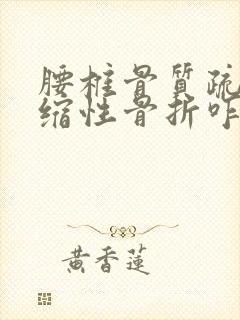 腰椎骨質疏
缩性骨折咋
黄香蓮